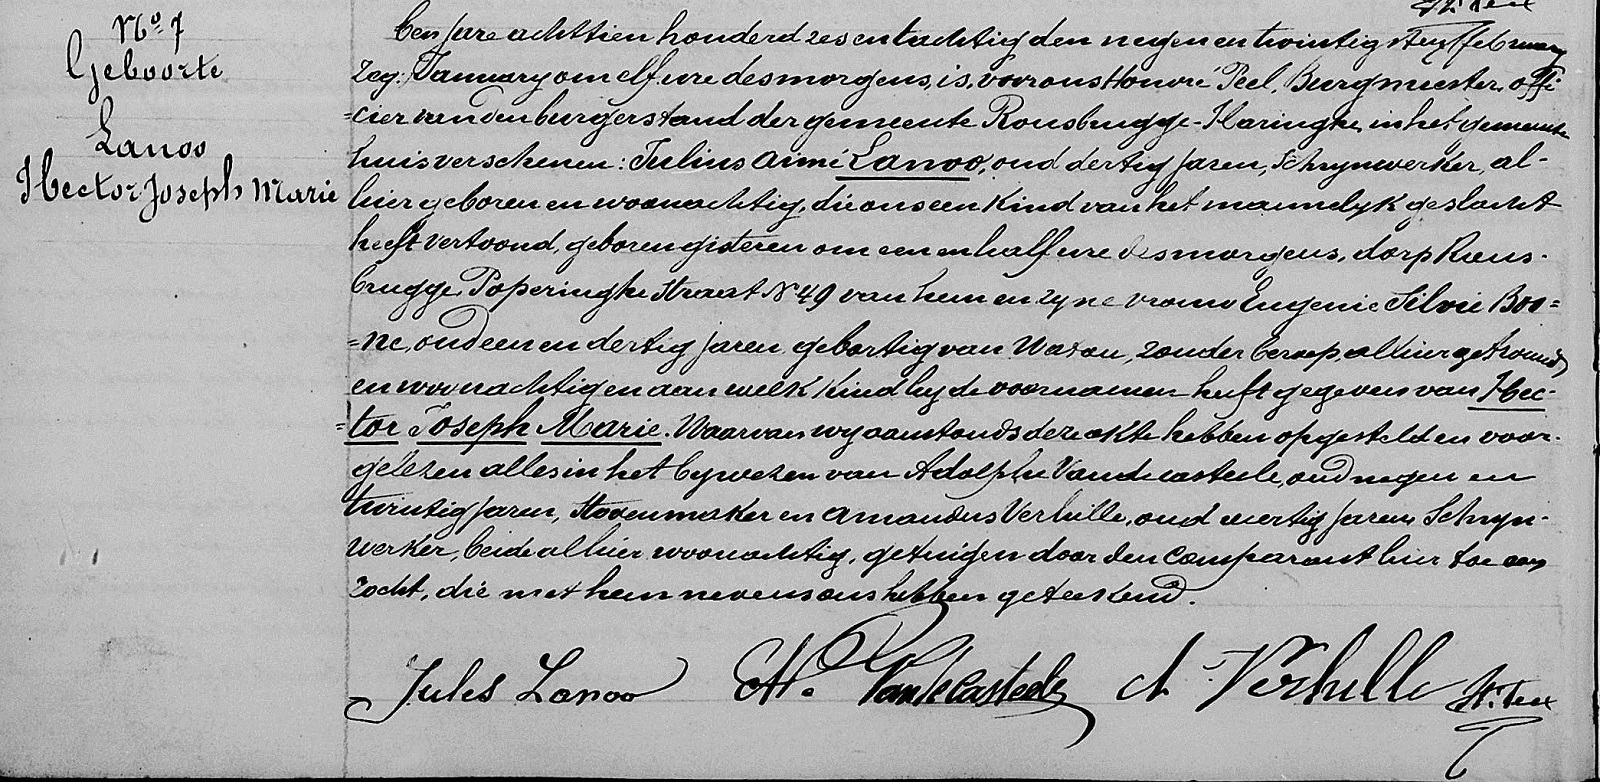 No 7
Geboorte
Lanoo
Hector Joseph Marie
Een jare achttien honderd zes en tachtig den negen en twintig sten february
zeg: January om elf ure des morgens, is voor ons Honoré Peel, Burgmeester, offi-
=cier van den burgerstand der gemeente Rousbrugge-Haringhe, in het gemeente
huis verschenen: Julius Aimé Lanoo, oud dertig jaren, Schrynwerker, al-
hier geboren en woonachtig, die ons een kind van het mannelyk geslacht
heeft vertoond, geboren gisteren om een en half ure des morgens, dorp Rous-
brugge, Poperinghe Straat No 49 van hem en zyne vrouw Eugenie Silvie Boo=
=ne, oud een en dertig jaren gebortig van Watou, zonder beroep, alhier getrouwd
en woonachtig en aan welk kind hy de voornamen heeft gegeven van Hec-
=tor Joseph Marie. Waarvan wy aanstonds deze akte hebben opgesteld en voor-
gelezen alles in het bywezen van Adolphe Vandecasteele, oud negen en
twintig jaren, Stovenmaker en Amandus Verhille, oud veertig jaren Schryn-
werker, beide alhier woonachtig, getuigen door den comparant hier toe aan
zocht, die met hem nevens ons hebben geteekend.
Jules Lanoo Ad. Vandecasteele A. Verhille H. Peel